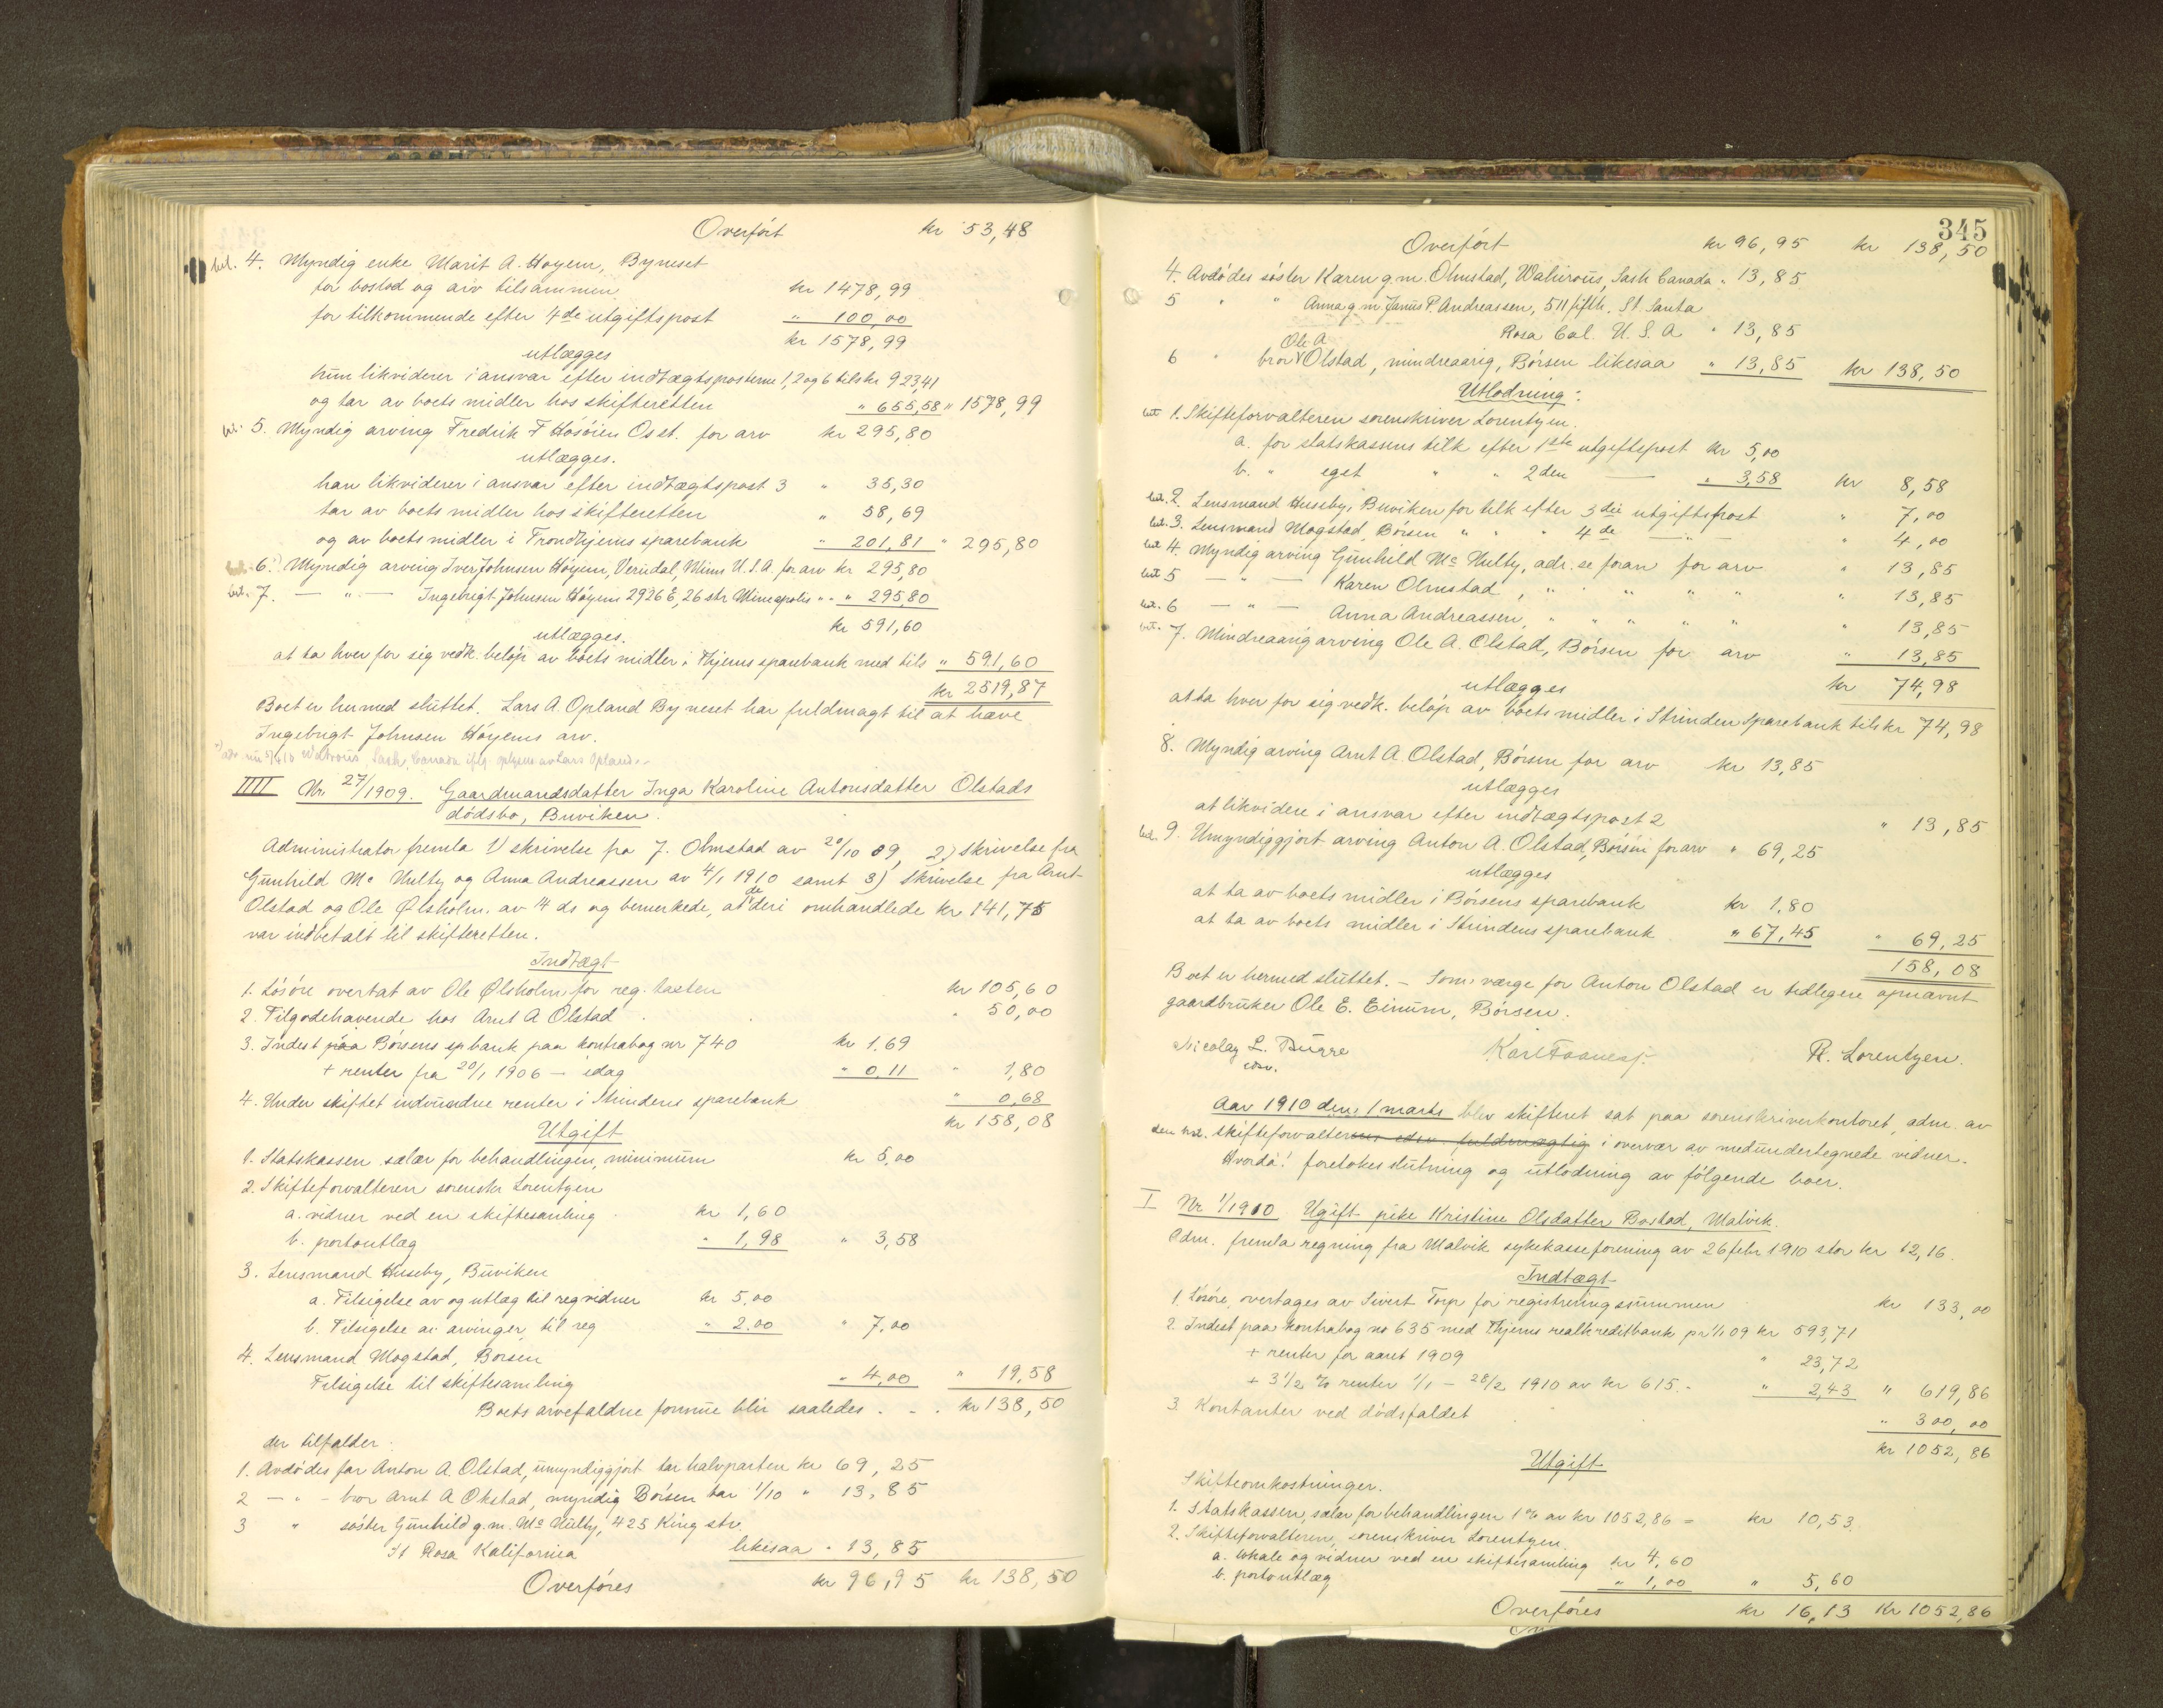 Overført kr 53,48
bet. 4. Myndig enke Marit A. Høyem, Byneset
for boslod og arv tilsammen kr 1478,99
for tilkommende efter 4de utgiftspost " 100,00
kr 1578,99
utlægges
hun likviderer i ansvar efter indtægtsposterne 1, 2 og 6 tils kr 923,41
og tar av boets midler hos skifteretten " 655,58 " 1578,99
bet. 5. Myndig arving Fredrik F Høsöien Osst. for arv kr 295,80
utlægges.
han likviderer i ansvar efter indtægtspost 3 " 35,30
tar av boets midler hos skifteretten " 58,69
og av boets midler i Trondhjems sparebank " 201,81 " 295,80
bet. 6.) Myndig arving Iver Johnsen Höyem, Verndal, Minn U.S.A. for arv kr 295,80
bet. 7. — " — Ingebrigt Johnsen Höyem 2926 E, 26 str Mineapolis " " " 295,80
kr 591,60
utlægges.
at ta hver for sig vedk. beløp av boets midler i Thjems sparebank med tils " 591,60
kr 2519,87
Boet er hermed sluttet. Lars A. Opland Byneset har fuldmagt til at hæve
Ingebrigt Johnsen Höyems arv.
adr. nu Watrous, Sask, Canada iflg. oplysn av Lars Opland.-
IIII Nr. 27/1909. Gaardmandsdatter Inga Karoline Antonsdatter Olstads
dödsbo, Buviken.
Administrator fremla 1) skrivelse fra J. Olmstad av 20/10 09, 2) skrivelse fra
Gunhild Mc Nulty og Anna Andreassen av 4/1 1910 samt 3) skrivelse fra Arnt
Olstad og Ole Ølsholm. av 14 ds og bemerkede, at de deri omhandlede kr 141,75
var indbetalt til skifteretten.
Indtægt
1. Lösöre overtat av Ole Ølsholm for reg. taksten kr 105,60
2. Tilgodehavende hos Arnt A Olstad " 50,00
3. Indest paa Börsens spbank paa kontrabog nr 740 kr 1.69
+ renter fra 20/1 1906 — idag " 0,11 " 1,80
4. Under skiftet indvundne renter i Strindens sparebank " 0,68
kr 158,08
Utgift
1. Statskassen salær for behandlingen, minimum kr 5,00
2. Skifteforvalteren sorenskr Lorentzen
a. vidner ved en skiftesamling kr 1,60
b. portoutlæg " 1,98 " 3,58
3. Lensmand Huseby, Buviken
a. Tilsigelse av og utlæg til reg vidner kr 5,00
b. Tilsigelse av arvinger til reg " 2.00 " 7,00
4. Lensmand Mogstad, Börsen
Tilsigelse til skiftesamling " 4,00 " 19,58
Boets arvefaldne formue blir saaledes . . . kr 138,50
der tilfalder:
1. Avdödes far Anton A. Olstad, umyndiggjort tar halvparten kr 69,25
2 — " — bror Arnt A Olstad, myndig Börsen tar 1/10 " 13,85
3 " söster Gunhild g.m. Mc Nulty, 425 King str.
St Rosa Kalifornia likesaa " 13,85
Overføres kr 96,95 kr 138,50
345
Overført kr 96,95 kr 138,50
4. Avdödes söster Karen g.m. Olmstad, Watrous, Sask Canada " 13,85
5 " " Anna g.m Janus P. Andreassen, 511 fifth. St. Santa
Rosa Cal. U.S.A " 13,85
Ole A
6 " bror Olstad, mindreaarig, Börsen likesaa " 13,85 kr 138,50
Utlodning:
bet 1. Skifteforvalteren sorenskriver Lorentzen.
a. for statskassens tilk efter 1ste utgiftspost kr 5,00
b. " eget " " 2den — " 3,58 kr 8,58
bet. 2. Lensmand Huseby, Buviken for tilk efter 3die utgiftspost " 7,00
bet. 3. Lensmand Mogstad, Börsen " " " 4de — " — " 4,00
bet 4. Myndig arving Gunhild Mc Nulty, adr. se foran for arv " 13,85
bet 5 — " — Karen Olmstad, " " " " " " 13,85
bet. 6 — " — Anna Andreassen, " " " " " " 13,85
bet. 7. Mindreaarig arving Ole A. Olstad, Börsen for arv " 13,85
utlægges kr 74,98
at ta hver for sig vedk. beløp av boets midler i Strinden Sparebank tils kr 74,98
8. Myndig arving Arnt A. Olstad, Börsen for arv kr 13,85
utlægges
at likvidere i ansvar efter indtægtspost 2 " 13,85
bet. 9. Umyndiggjort arving Anton A. Olstad, Börsen for arv " 69,25
utlægges
at ta av boets midler i Börsens sparebank kr 1,80
at ta av boets midler i Strindens sparebank " 67,45 " 69,25
158,08
Boet er hermed sluttet. – Som værge for Anton Olstad er tidligere opnævnt
gaardbruker Ole E. Einum, Börsen.
Nicolay L. Bugge R. Lorentzen.
edsv.
Aar 1910 den 1 marts blev skifteret sat paa sorenskriverkontoret, adm. av
den kst. skifteforvalterens edsv. fuldmægtig i overvær av medundertegnede vidner.
Hvorda! foretokes slutning og utlodning av følgende boer.
I Nr 1/1910 Ugift pike Kristine Olsdatter Bostad, Malvik.
Adm. fremla regning fra Malvik sykekasseforening av 26 febr 1910 stor kr 12,16.
Indtægt
1. Lösöre, overtages av Sivert Torp for registreringssummen kr 133,00
2. Indest paa kontrabog no 635 med Thjems realkreditbank pr 1/1 09 kr 593,71
+ renter for aaret 1909 " 23,72
+ 3 1/2 % renter 1/1 – 28/2 1910 av kr 615.- " 2,43 " 619,86
3. Kontanter ved dödsfaldet " 300,00
kr 1052,86
Utgift
Skifteomkostninger.
1. Statskassen, salær for behandlingen 1 % av kr 1052,86 = kr 10,53.
2. Skifteforvalteren, sorenskriver Lorentzen
a. lokale og vidner ved en skiftesamling kr 4,60
b. portoutlæg " 1,00 " 5,60
Overføres kr 16,13 kr 1052,86